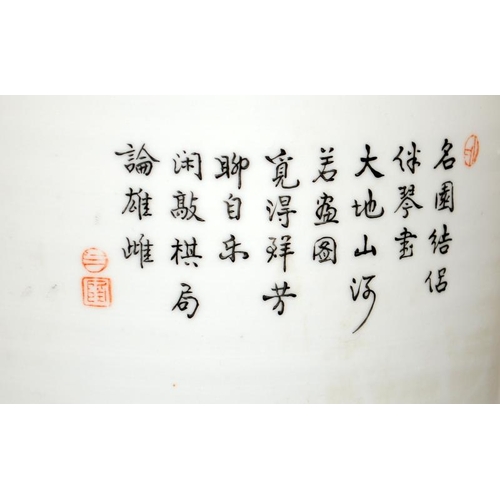 名園結侶
伴琴書
大地山河
若畫图
覓得群芳
聊自乐
闲敲棋局
論雄雌